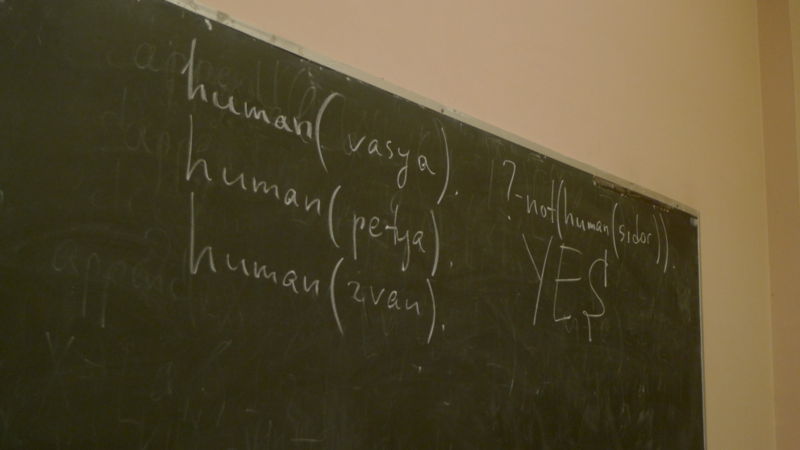 human(vasya).
human(petya).
human(ivan).
?-not(human(sidor)).
YES
append